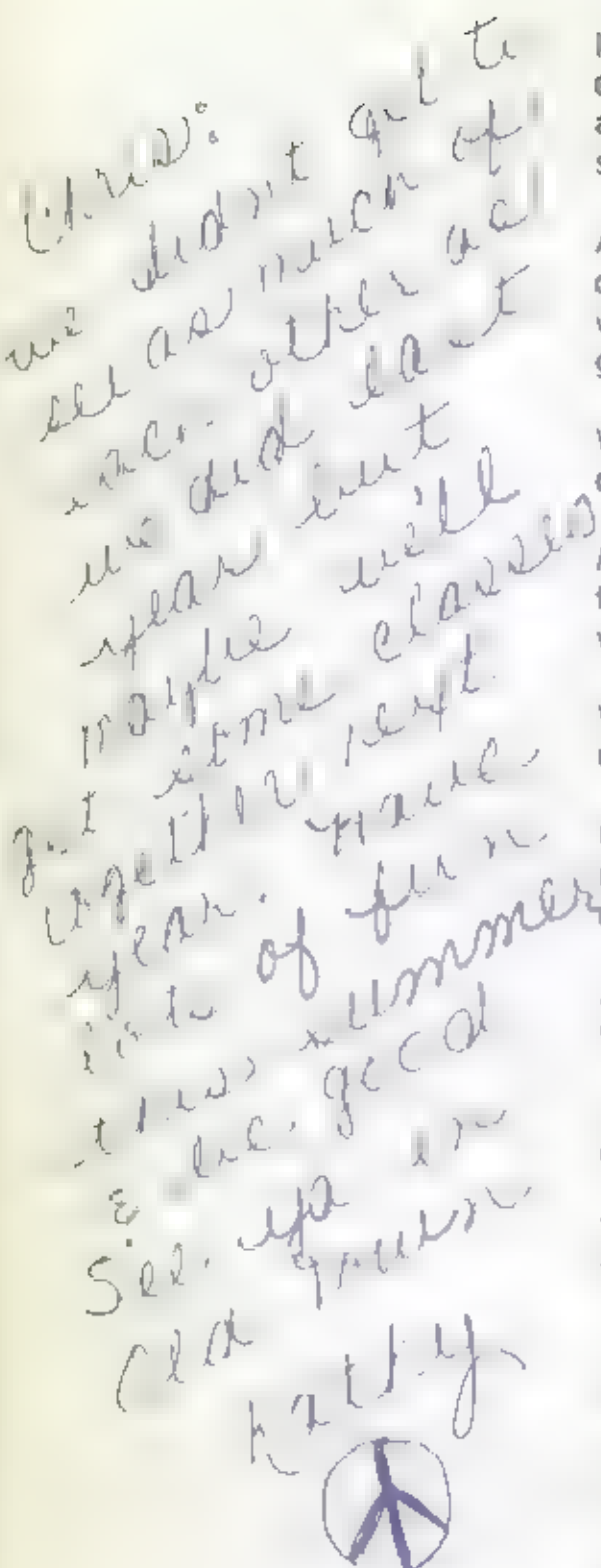 Chris:
we didn't get to
see as much of
each other as
we did last
year but
maybe we'll
get some classes
together next
year. Have
lots of fun
this summer
& be good
See ya in
old
Kathy